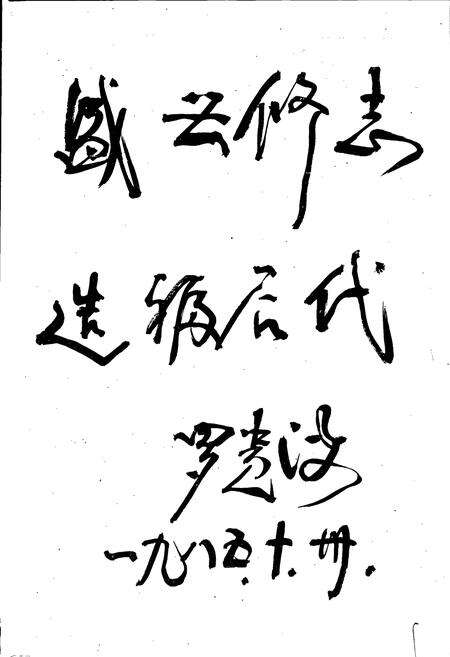 盛世修志
造福后代
罗贵波
一九八五.十.卅.